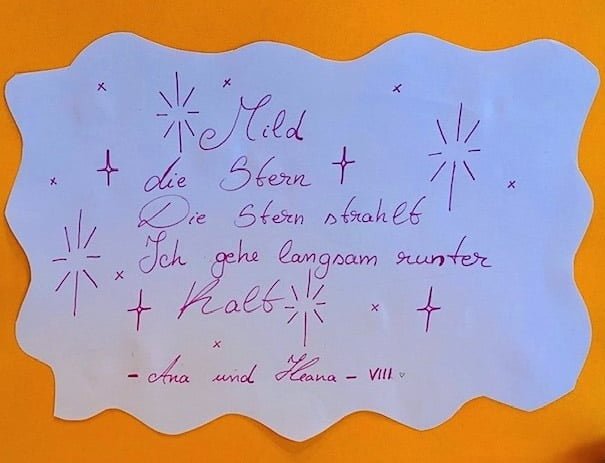 Mild
die Stern
Die Stern strahlt
Ich gehe langsam runter
Kalt
- Ana und Ileana - VIII